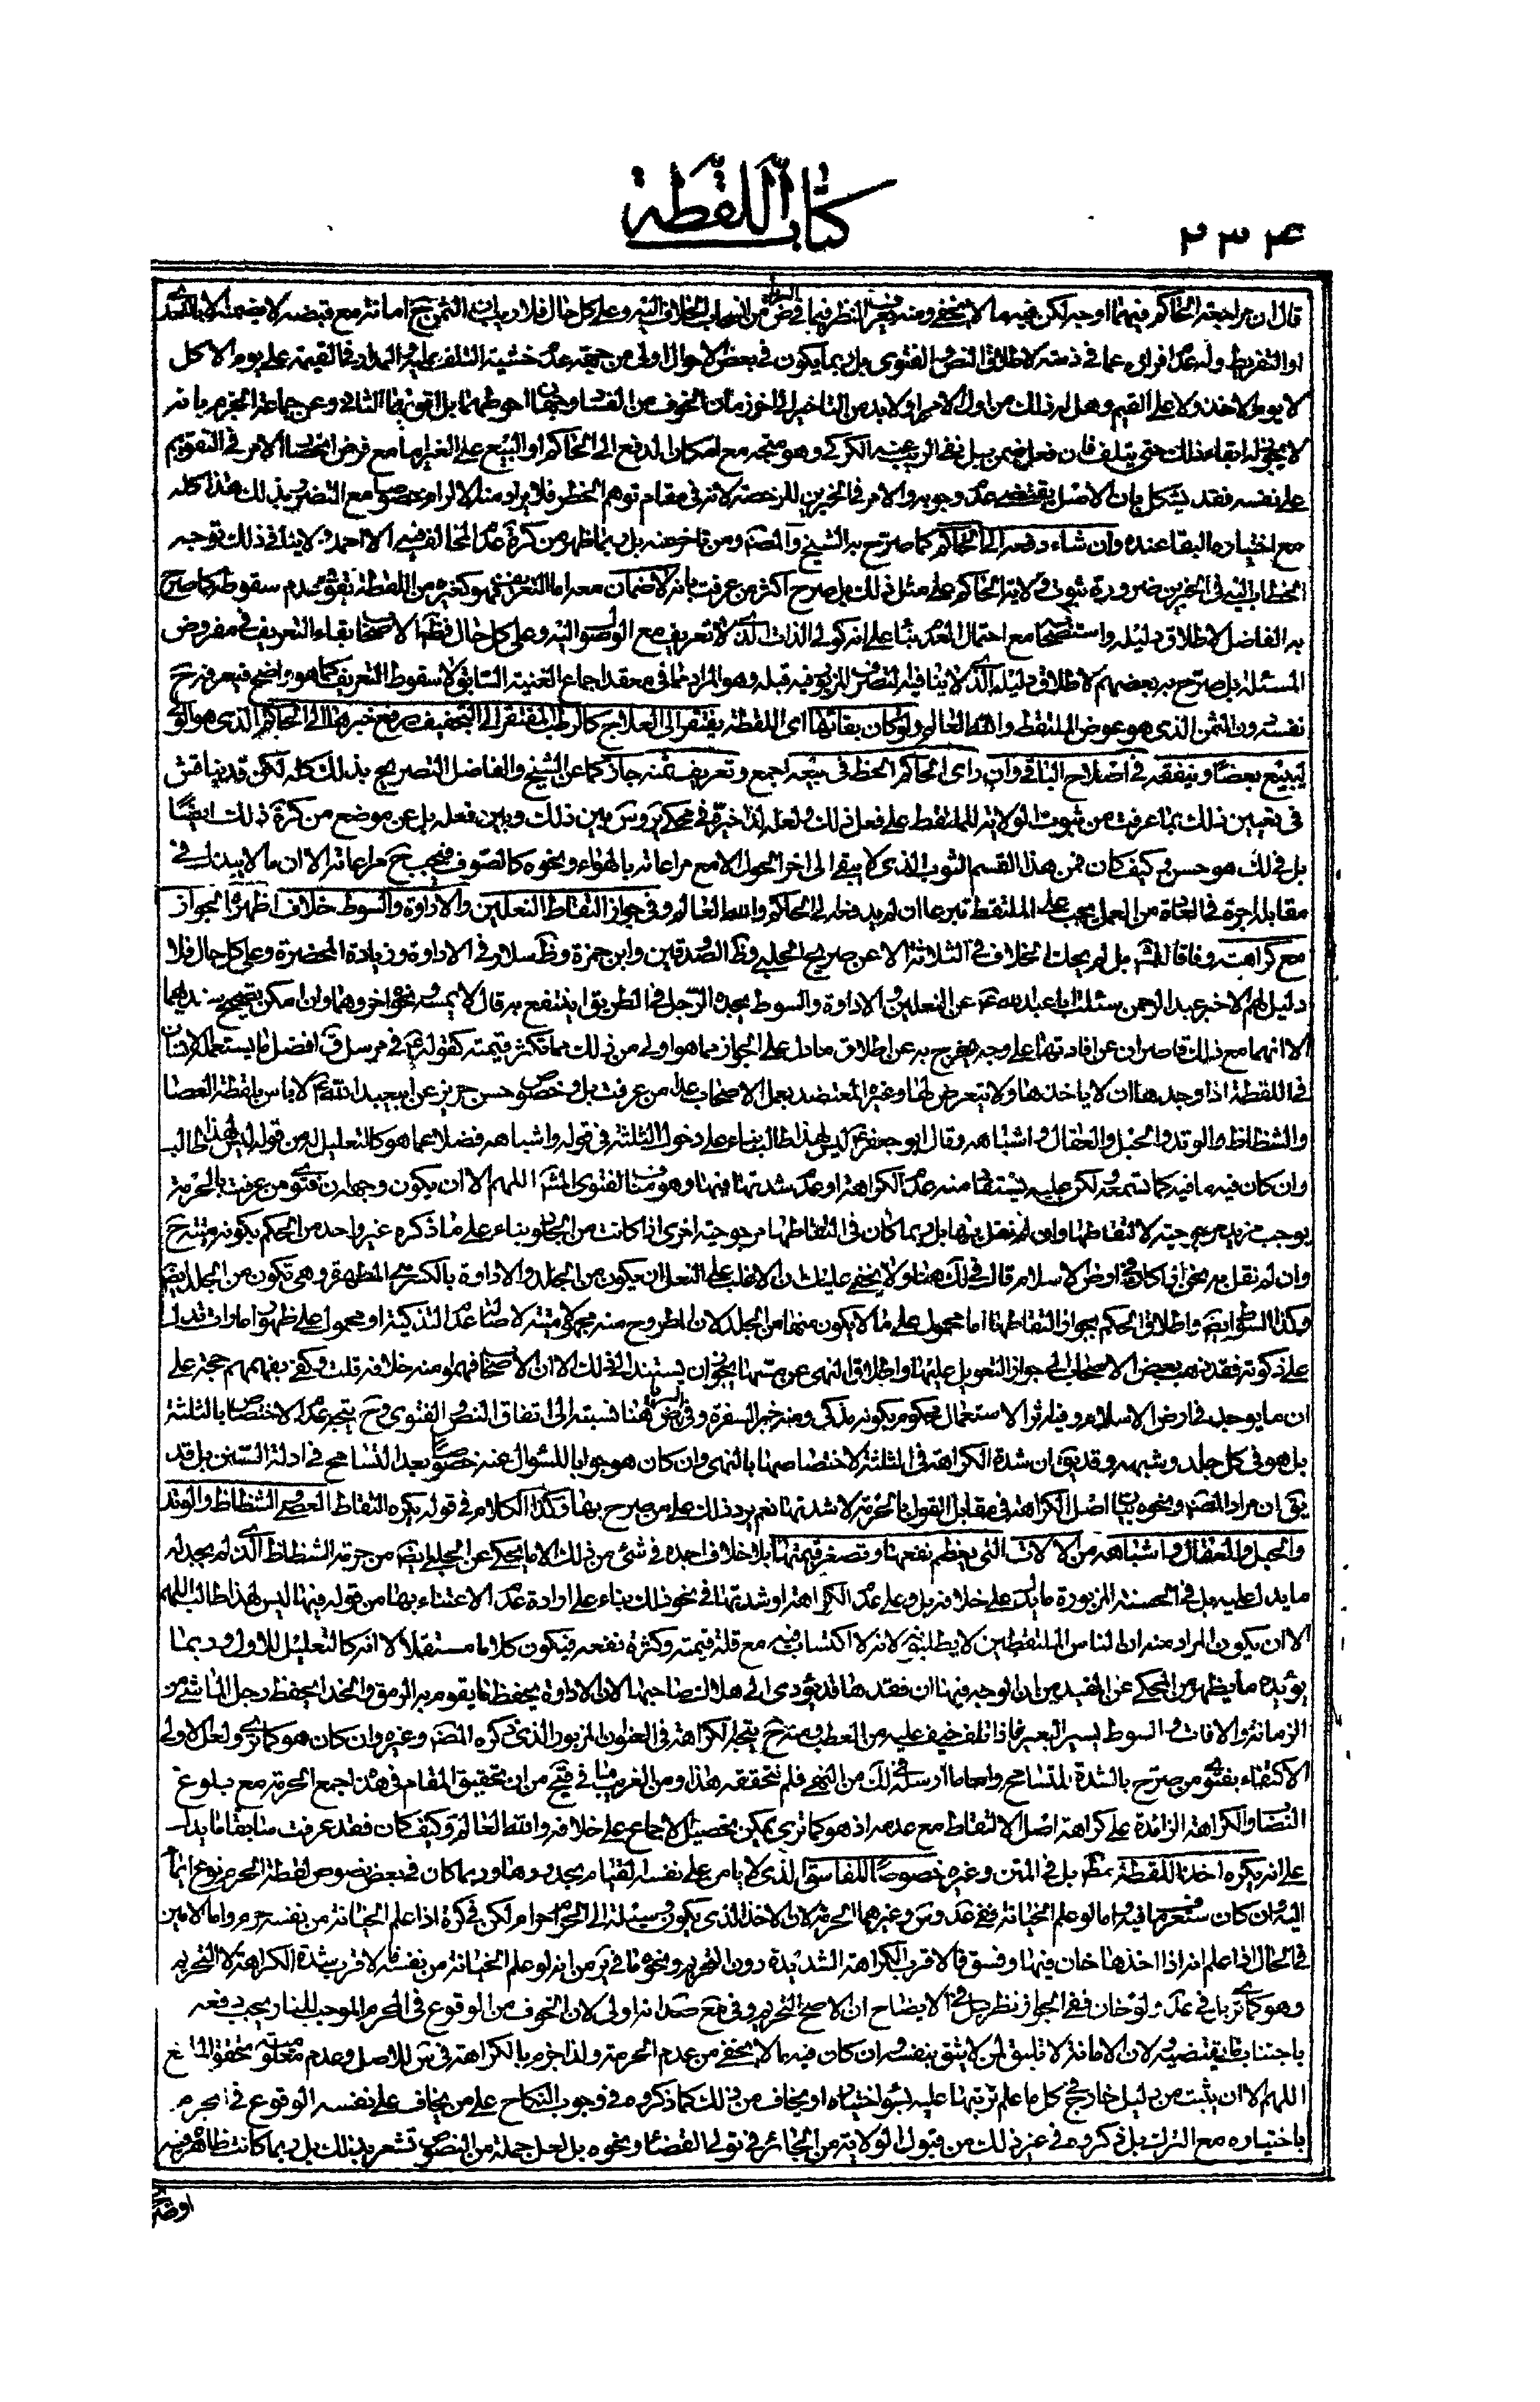 ۲۳۴
كتاب اللقطة
قال ان مراجعة الحاكم فيهما اوجه لكن فيه ما لا يخفى ومنه يعلم النظر فيما في ض من انسحاب الخلاف اليه وعلى كل حال فلا ريب في ان الثمن ح امانة مع قبضه لا يضمنه الا بالتعدى
او التفريط وله عدم افرازه عما في ذمته لاطلاق النص والفتوى بل ربما يكون في بعض الاحوال اولى من جهة عدم خشية التلف عليه المدار في القيمة على يوم الاكل
لا يوم الاخذ ولا على القيم وهل له ذلك من اول الامر او لا بد من التاخير الى اخر زمان الخوف من الفساد وجهان احوطهما بل اقويهما الثانى وعن جماعة الجزم بانه
لا يجوز له ابقاء ذلك حتى يتلف فان فعل ضمن بل نفى الريب عنه الكركى وهو متجه مع امكان الدفع الى الحاكم او البيع على الغير اما مع فرض انحصار الامر في التقويم
على نفسه فقد يشكل بان الاصل يقتضى عدم وجوبه والامر في الخبرين للرخصة لانه في مقام توهم الحظر فلا يراد منه الالزام خصوصا مع التضرر بذلك هذا كله
مع اختياره البقاء عنده وان شاء دفعه الى الحاكم كما صرح به الشيخ والمصنف ومن تاخر عنه بل ربما ظهر من كرة عدم المخالف فيه الا احمد ولا ينافى ذلك توجه
الخطاب اليه في الخبرين ضرورة ثبوت ولاية الحاكم على مثل ذلك بل صرح اكثر من عرفت بانه لا ضمان معه اما التعريف فهو كغيره من اللقطة بقى عدم سقوطه كما صرح
به الفاضل لاطلاق دليله واستصحابه مع احتمال العدم بناء على انه كولى الذات الذى لا تعريف مع الوصول اليه وعلى كل حال فظاهر الاصحاب بقاء التعريف في مفروض
المسئلة بل صرح به بعضهم لاطلاق دليله الذى لا ينافيه النص المزبور فيه قبله وهو المراد مما في معقد اجماع الغنية السابق لا سقوط التعريف كما هو واضح فيعرفه ح
نفسه دون الثمن الذى هو عوض الملتقط والله العالم ولو كان بقائها اى اللقطة يفتقر الى العلاج كالرطب المفتقر الى التجفيف يرفع خبرها الى الحاكم الذى هو الولى
ليبيع بعضا وينفقه في اصلاح الباقى وان راى الحاكم الحظ في بيعه اجمع وتعريف ثمنه جاز كما عن الشيخ والفاضل التصريح بذلك كله لكن قد يناقش
في تعيين ذلك بما عرفت من ثبوت الولاية للملتقط على فعل ذلك ولعله لذا خيره في محكى ير وس بين ذلك وبين فعله بل عن موضع من كرة ذلك ايضا
بل في لك هو حسن وكيف كان فمن هذا القسم الثوب الذى لا يبقى الى اخر الحول الا مع مراعاته بالهواء ونحوه كالصوف فيجب ح مراعاته الا ان ما لا يبذل في
مقابله اجرة في العادة من العمل يجب على الملتقط تبرعا ان لم يدفعه الى الحاكم والله العالم وفى جواز التقاط النعلين والاداوة والسوط خلاف اظهره الجواز
مع كراهة وفاقا للمشهور بل لم يحك الخلاف في الثلاثة الا عن صريح الحلبى وظاهر الصدوقين وابن حمزة وظاهر سلار في الاداوة وزيادة المخصرة وعلى كل حال فلا
دليل لهم الا خبر عبد الرحمن سئلت ابا عبد الله ع عن النعلين والاداوة والسوط يجده الرجل في الطريق اينتفع به قال لا يمسه ونحوه اخر وهما وان امكن تصحيح سنديهما
الا انهما مع ذلك قاصران عن افادتها على وجه يخرج به عن اطلاق ما دل على الجواز مما هو اولى من ذلك مما تكثر قيمته كقوله ع في مرسل ق افضل ما يستعمله الانسان
في اللقطة اذا وجدها ان لا ياخذها ولا يتعرض لها وغيره المعتضد بعمل الاصحاب عدا من عرفت بل وخصوص حسن حريز عن ابي عبد الله ع لا باس بلقطة العصا
والشظاظ والوتد والحبل والعقال واشباهه وقال ابو جعفر ع ليس لهذا طالب بناء على دخول الثلثة في قوله واشباهه فضلا عما هو كالتعليل له من قوله ليس لهذا طالب
وان كان فيه ما فيه كما ستسمعه لكن عليه يستفاد منه عدم الكراهة او عدم شدتها فيها وهو مناف لفتوى المشهور اللهم الا ان يكون وجهه ان فتوى من عرفت بالحرمة
يوجب مزيد مرجوحية لالتقاطها وان لم نقل بها بل ربما كان في التقاطها مرجوحية اخرى اذا كانت من الجلود بناء على ما ذكره غير واحد من الحكم بكونه ميتة ح
وان لم نقل به نحن اذا كان في ارض الاسلام قال في لك هنا ولا يخفى عليك ان الاغلب على النعل ان يكون من الجلد والاداوة بالكسر هى المطهرة وهى تكون من الجلد ايضا
وكذا السوط ايضا واطلاق الحكم بجواز التقاطها اما محمول على ما لا يكون منها من الجلد لان المطروح منه مجهولا ميتة لاصالة عدم التذكية او محمول على ظهور امارات تدل
على ذكوته فقد ذهب بعض الاصحاب الى جواز التعويل عليها واطلاق النهى عن مسها يجوز ان يستند الى ذلك الا ان الاصحاب فهموا منه خلافه قلت وكفى بفهمهم حجة على
ان ما يوجد في ارض الاسلام وفيه اثر الاستعمال محكوم بكونه مذكى ومنه خبر السفرة وفى الرياض هنا نسبته الى اتفاق النص والفتوى وح يتجه عدم الاختصاص بالثلثة
بل هو في كل جلد وشبهه وقد يق ان شدة الكراهة في الثلثة لاختصاصها بالنهى وان كان هو جوابا للسؤال عنه خصوصا بعد التسامح في ادلة السنن بل قد
يق ان مراد المصنف ونحوه بيان اصل الكراهة في مقابل القول بالحرمة لا شدتها نعم يرد ذلك على من صرح بها وكذا الكلام في قوله يكره التقاط العصا والشظاظ والوتد
والحبل والعقال واشباهه من الالات التى يعظم نفعها وتصغر قيمتها بلا خلاف اجده في شئ من ذلك الا ما يحكى عن الحلبى ايضا من حرمة الشظاظ الذى لم يجد له
ما يدل عليه بل في الحسنة المزبورة ما يدل على خلافه بل وعلى عدم الكراهة او شدتها في نحو ذلك بناء على ارادة عدم الاعتناء بها من قوله فيها ليس لهذا طالب اللهم
الا ان يكون المراد منه ان الناس الملتقطين لا يطلبونه لانه لا اكتساب فيه مع قلة قيمته وكثرة نفعه فيكون كلاما مستقلا لا انه كالتعليل للاول وربما
يؤيده ما يظهر من المحكى عن المفيد من ان الوجه فيها ان فقدها قد يؤدى الى هلاك صاحبها لان الاداوة يحفظ ما يقوم به الرمق والحذاء يحفظ رجل الماشى من
الزمانة والافات والسوط يسير البعير فاذا تلف خيف عليه من العطب ومنه ح يتجه الكراهة في العنوان المزبور الذى ذكره المصنف وغيره وان كان هو كما ترى ولعل الاولى
الاكتفاء بفتوى من صرح بالشدة للتسامح واما ما ارسله في لك من النهى فلم نتحققه هذا ومن الغريب ما في مفتح من ان تحقيق المقام في هذا جمع الحرمة مع بلوغ
النصاب والكراهة الزائدة على كراهة اصل الالتقاط مع عدمه اذ هو كما ترى يمكن تحصيل الاجماع على خلافه والله العالم وكيف كان فقد عرفت سابقا ما يدل
على انه يكره اخذ اللقطة مط بل في المتن وغيره خصوصا للفاسق الذى لا يامن على نفسه القيام بحدودها وربما كان في بعض نصوص لقطة الحرم نوع ايماء
اليه وان كان ستعرف ما فيه اما لو علم الخيانة ففى عد وس وغيرهما الحرمة لان الاخذ الذى يكون وسيلة الى الحرام حرام لكن في كرة اذا علم الخيانة من نفسه حرم واما الامين
في الحال اذا علم انه اذا اخذها خان فيها وفسق فالاقرب الكراهة الشديدة دون التحريم ونحوه ما في ير من انه لو علم الخيانة من نفسه فالاقرب شدة الكراهة لا التحريم
وهو كما ترى بل في عد ولو خان ففى الجواز نظر بل في الايضاح ان الاصح التحريم وفى جامع المقاصد انه اولى لان الخوف من الوقوع في المحرم الموجب للنار يجب دفعه
باجتناب ما يقتضيه لان الامانة لا تليق بمن لا يثق بنفسه وان كان فيه ما لا يخفى من عدم الحرمة ولذا جزم بالكراهة في س للاصل وعدم معلومية تحقق المانع
اللهم الا ان يثبت من دليل خارجى كل ما علم ترتبها عليه بسوء اختياره او يخاف من ذلك كما ذكروه في وجوب النكاح على من يخاف على نفسه الوقوع في المحرم
باختياره مع الترك بل ذكروه في غير ذلك من قبول الولاية من الجائر في تولى القضاء ونحوه بل لعل جملة من النصوص تشعر بذلك بل ربما كانت ظاهرة فيه